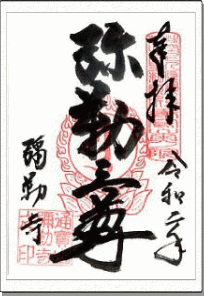 奉拝
令和二年
弥勒三尊
彌勒寺